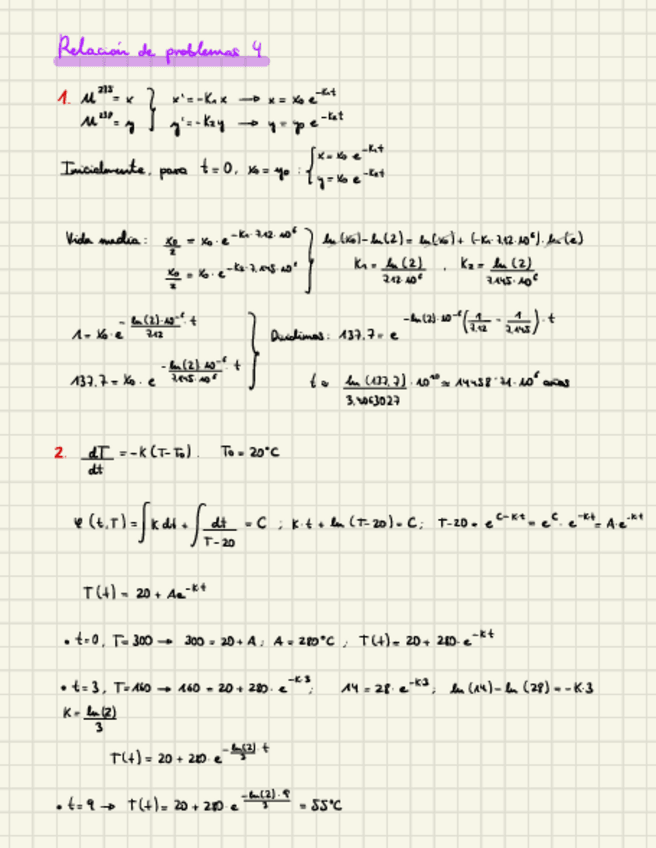 Relación de problemas 4
1. U²³⁵ = x } x' = -K₁x → x = x₀ e^(-K₁t)
U²³⁸ = y } y' = -K₂y → y = y₀ e^(-K₂t)
Inicialmente, para t=0, x₀ = y₀ : { x = x₀ e^(-K₁t)
y = x₀ e^(-K₂t)
Vida media: x₀/2 = x₀ · e^(-K₁·7.12·10⁶) } ln(x₀) - ln(2) = ln(x₀) + (-K₁·7.12·10⁶) · ln(e)
x₀/2 = x₀ · e^(-K₂·7.145·10⁶) } K₁ = ln(2)/7.12·10⁶ , K₂ = ln(2)/7.145·10⁶
1 = x₀ · e^(-ln(2)·10⁻⁶/7.12 · t) } Dividimos: 137,7 = e^(-ln(2)·10⁻⁶(1/7.12 - 1/7.145)·t)
137,7 = x₀ · e^(-ln(2)·10⁻⁶/7.145·10⁶ · t) } t = ln(137,7)/3,4063027 · 10¹⁰ ≈ 14458'71·10⁶ años
2. dT/dt = -K(T-T₀). T₀ = 20°C
φ(t,T) = ∫K dt + ∫dt/(T-20) = C ; K·t + ln(T-20) = C; T-20 = e^(C-Kt) = e^C · e^(-Kt) = A·e^(-Kt)
T(t) = 20 + Ae^(-Kt)
• t=0, T=300 → 300 = 20+A; A = 280°C ; T(t) = 20 + 280·e^(-Kt)
• t=3, T=160 → 160 = 20 + 280·e^(-K·3); 14 = 28·e^(-K·3); ln(14) - ln(28) = -K·3
K = ln(2)/3
T(t) = 20 + 280·e^(-ln(2)/3 · t)
• t=9 → T(t) = 20 + 280·e^(-ln(2)·9/3) = 55°C